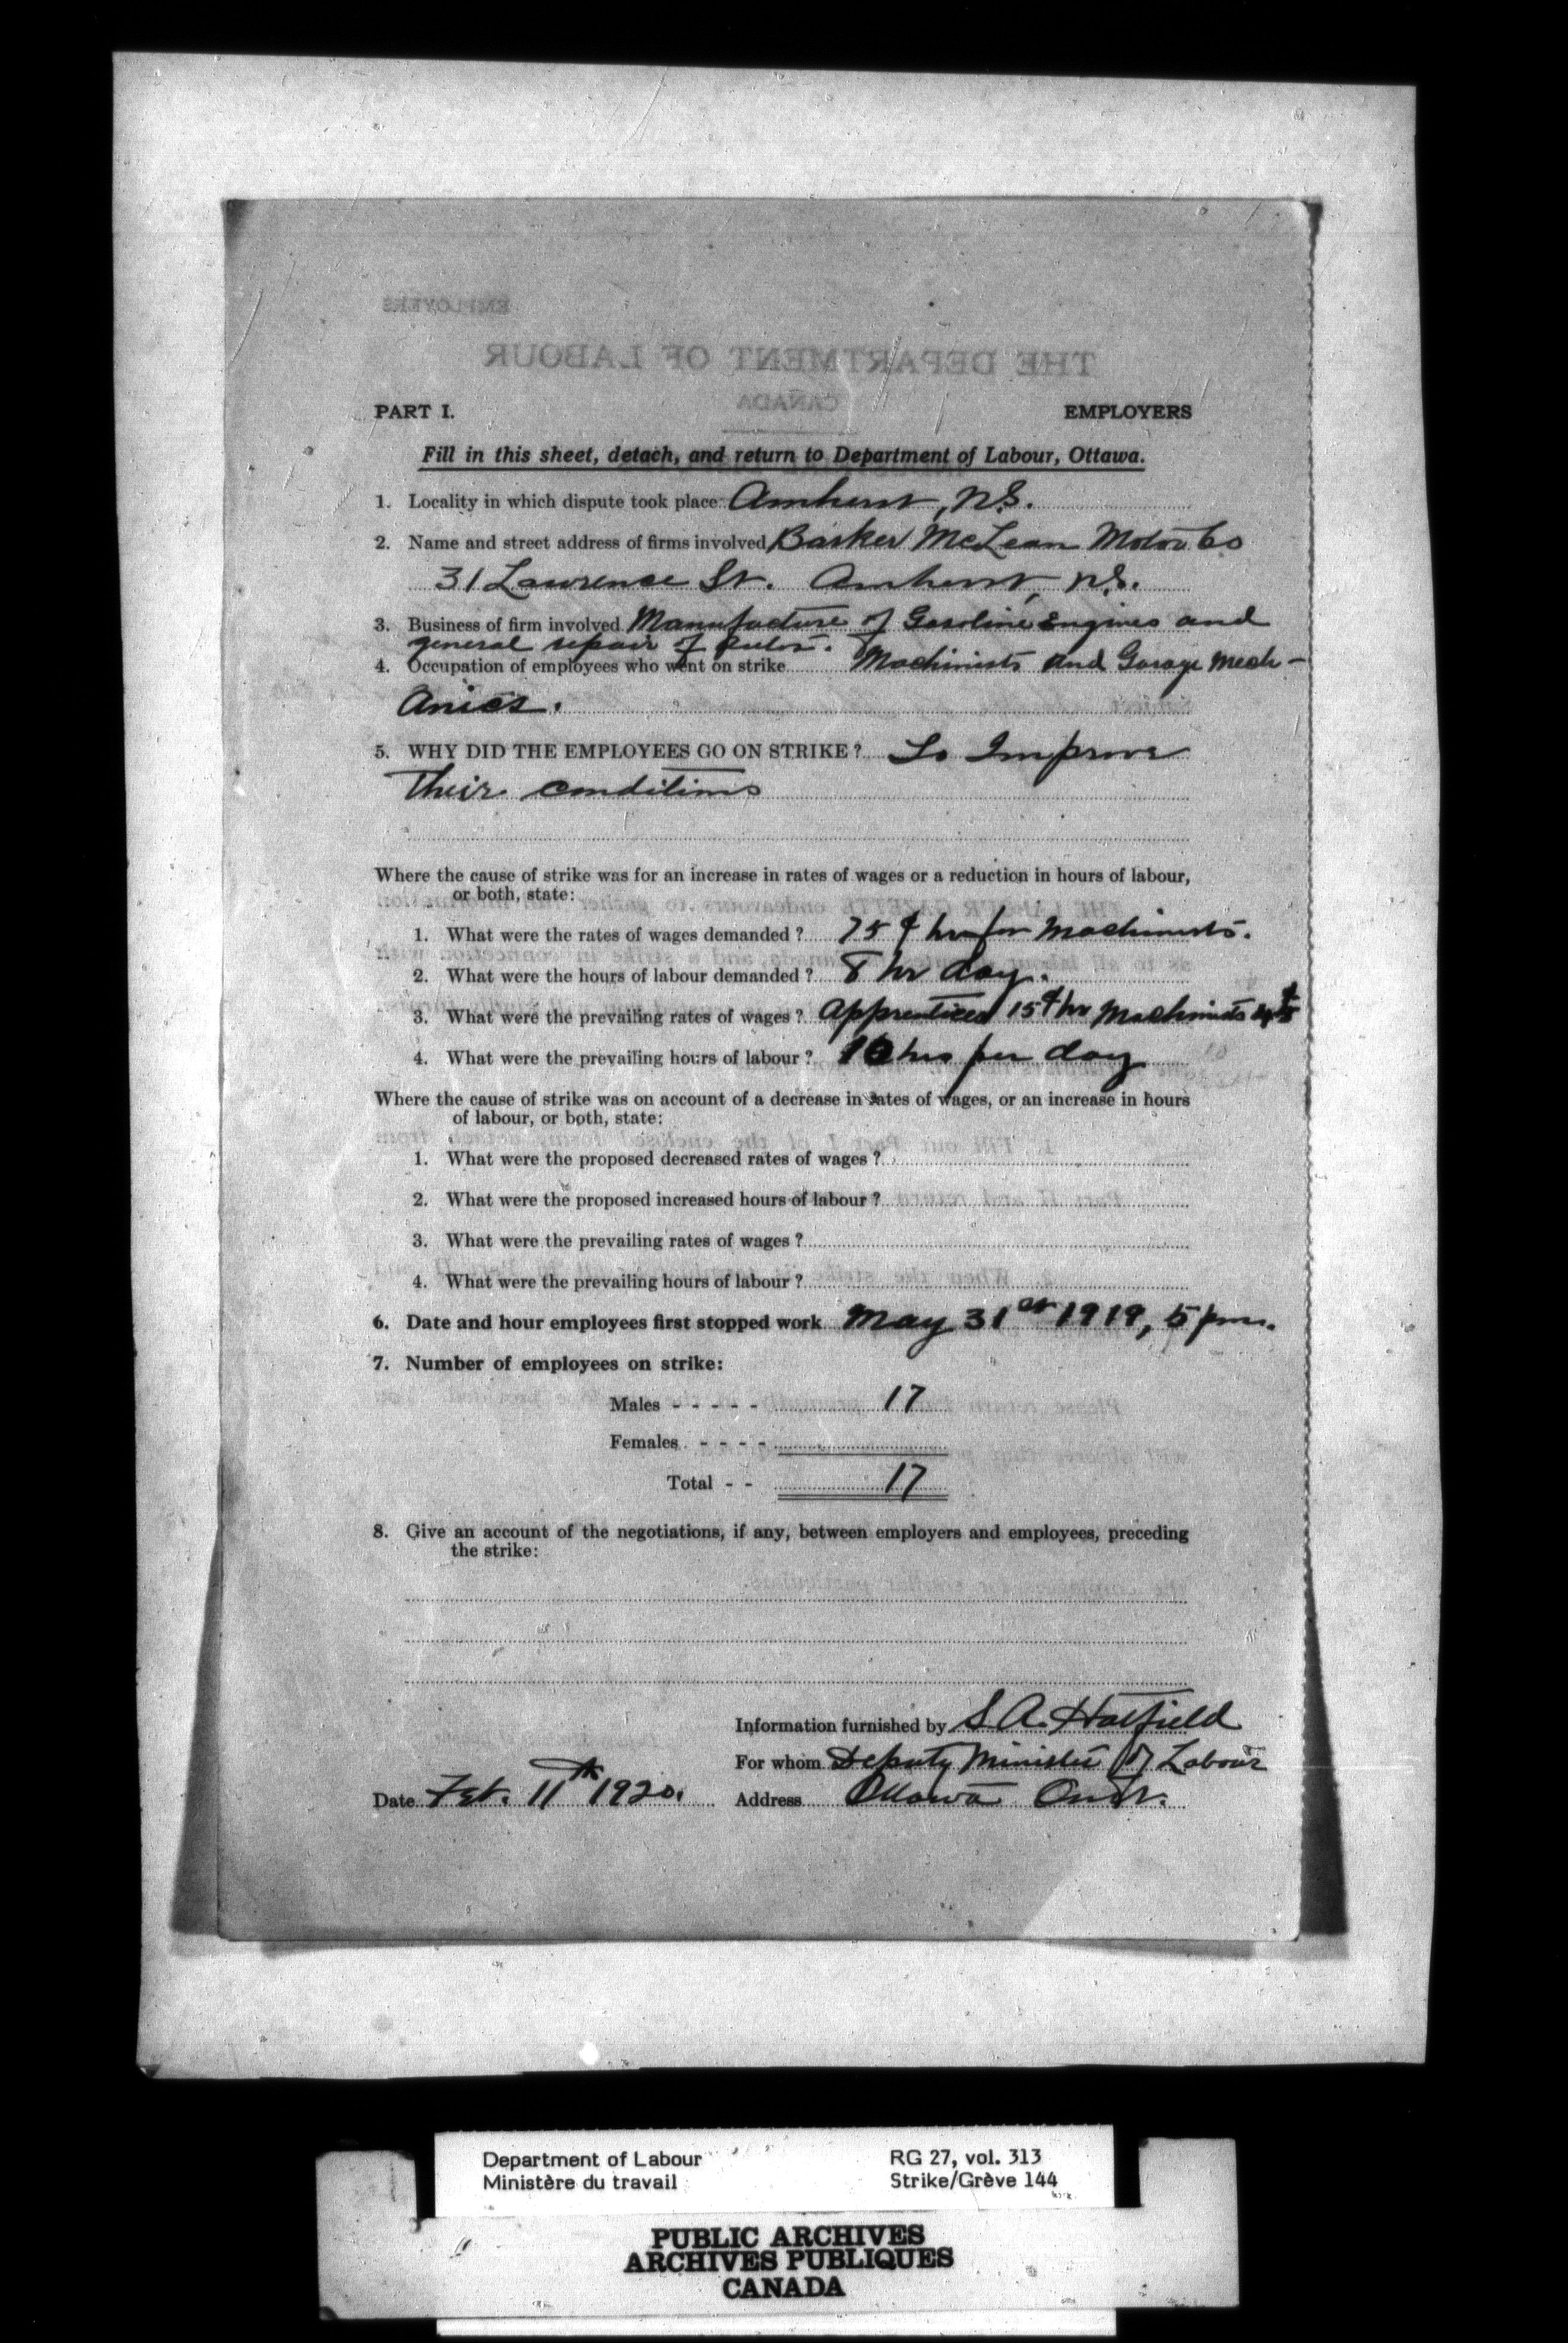 PART I.
EMPLOYERS
Fill in this sheet, detach, and return to Department of Labour, Ottawa.
1. Locality in which dispute took place Amherst, N.S.
2. Name and street address of firms involved Barker McLean Motor Co
31 Lawrence St. Amherst, N.S.
3. Business of firm involved Manufacture of Gasoline Engines and
general repair of Autos.
4. Occupation of employees who went on strike Machinists and Garage Mech-
anics.
5. WHY DID THE EMPLOYEES GO ON STRIKE? To Improve
Their conditions
Where the cause of strike was for an increase in rates of wages or a reduction in hours of labour,
or both, state:
1. What were the rates of wages demanded? 75 ¢ hr for Machinists.
2. What were the hours of labour demanded? 8 hr day.
3. What were the prevailing rates of wages? Apprentices 15¢ hr Machinists
4. What were the prevailing hours of labour? 10 hrs per day
Where the cause of strike was on account of a decrease in rates of wages, or an increase in hours
of labour, or both, state:
1. What were the proposed decreased rates of wages?
2. What were the proposed increased hours of labour?
3. What were the prevailing rates of wages?
4. What were the prevailing hours of labour?
6. Date and hour employees first stopped work May 31st 1919, 5 pm.
7. Number of employees on strike:
Males - - - - - 17
Females - - - -
Total - - 17
8. Give an account of the negotiations, if any, between employers and employees, preceding
the strike:
Information furnished by S. A. Hatfield
For whom Deputy Minister of Labour
Date Feb. 11th 1920. Address Ottawa Ont.
Department of Labour
Ministère du travail
RG 27, vol. 313
Strike/Grève 144
PUBLIC ARCHIVES
ARCHIVES PUBLIQUES
CANADA